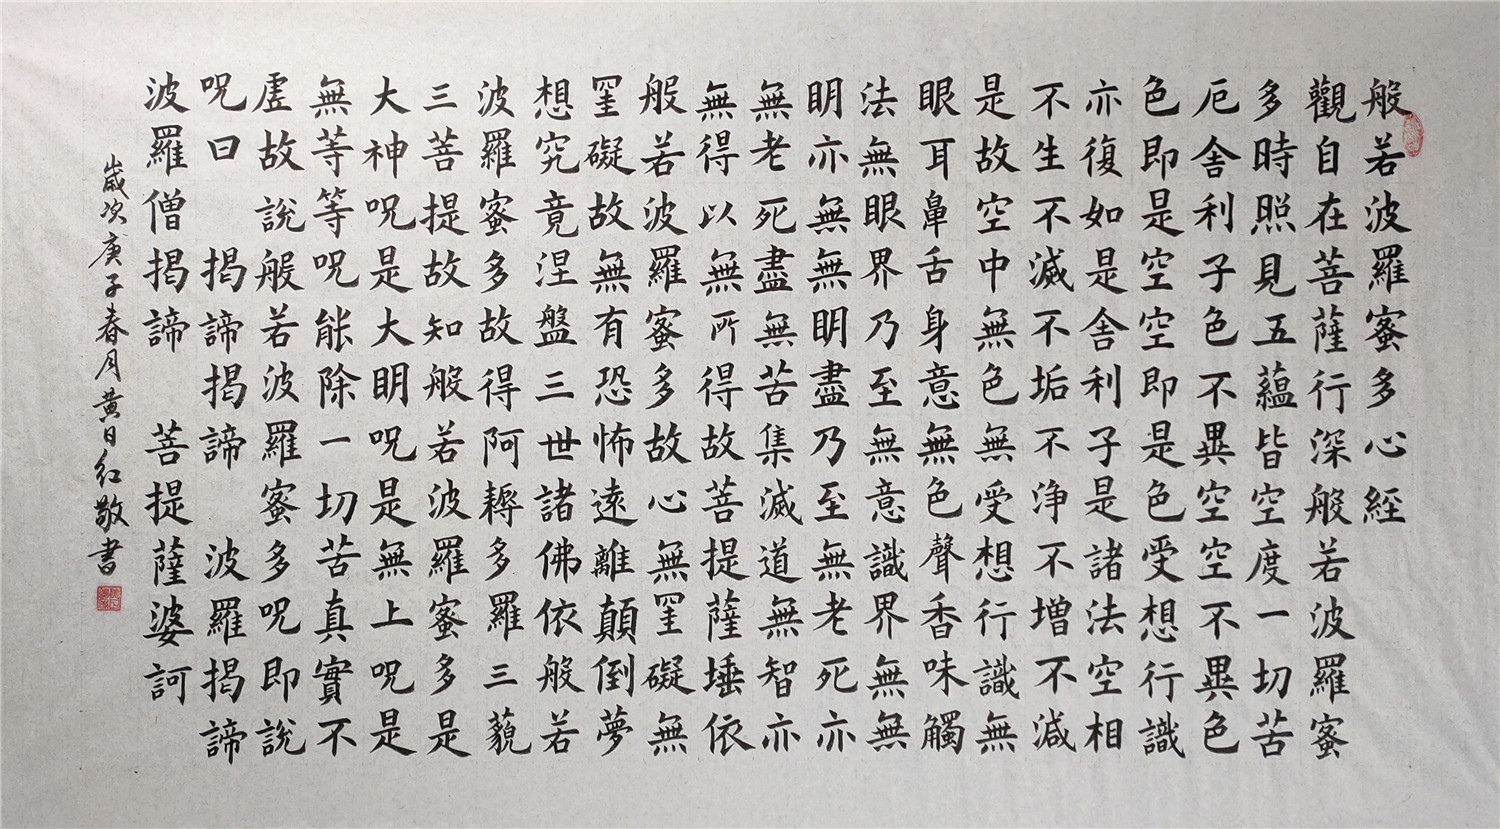 般若波羅蜜多心經
觀自在菩薩行深般若波羅蜜
多時照見五蘊皆空度一切苦
厄舍利子色不異空空不異色
色即是空空即是色受想行識
亦復如是舍利子是諸法空相
不生不滅不垢不浄不增不減
是故空中無色無受想行識無
眼耳鼻舌身意無色聲香味觸
法無眼界乃至無意識界無無
明亦無無明盡乃至無老死亦
無老死盡無苦集滅道無智亦
無得以無所得故菩提薩埵依
般若波羅蜜多故心無罣礙無
罣礙故無有恐怖遠離顛倒夢
想究竟涅盤三世諸佛依般若
波羅蜜多故得阿耨多羅三藐
三菩提故知般若波羅蜜多是
大神呪是大明呪是無上呪是
無等等呪能除一切苦真實不
虛故說般若波羅蜜多呪即說
呪曰 揭諦揭諦 波羅揭諦
波羅僧揭諦 菩提薩婆訶
歲次庚子春月黄日红敬書